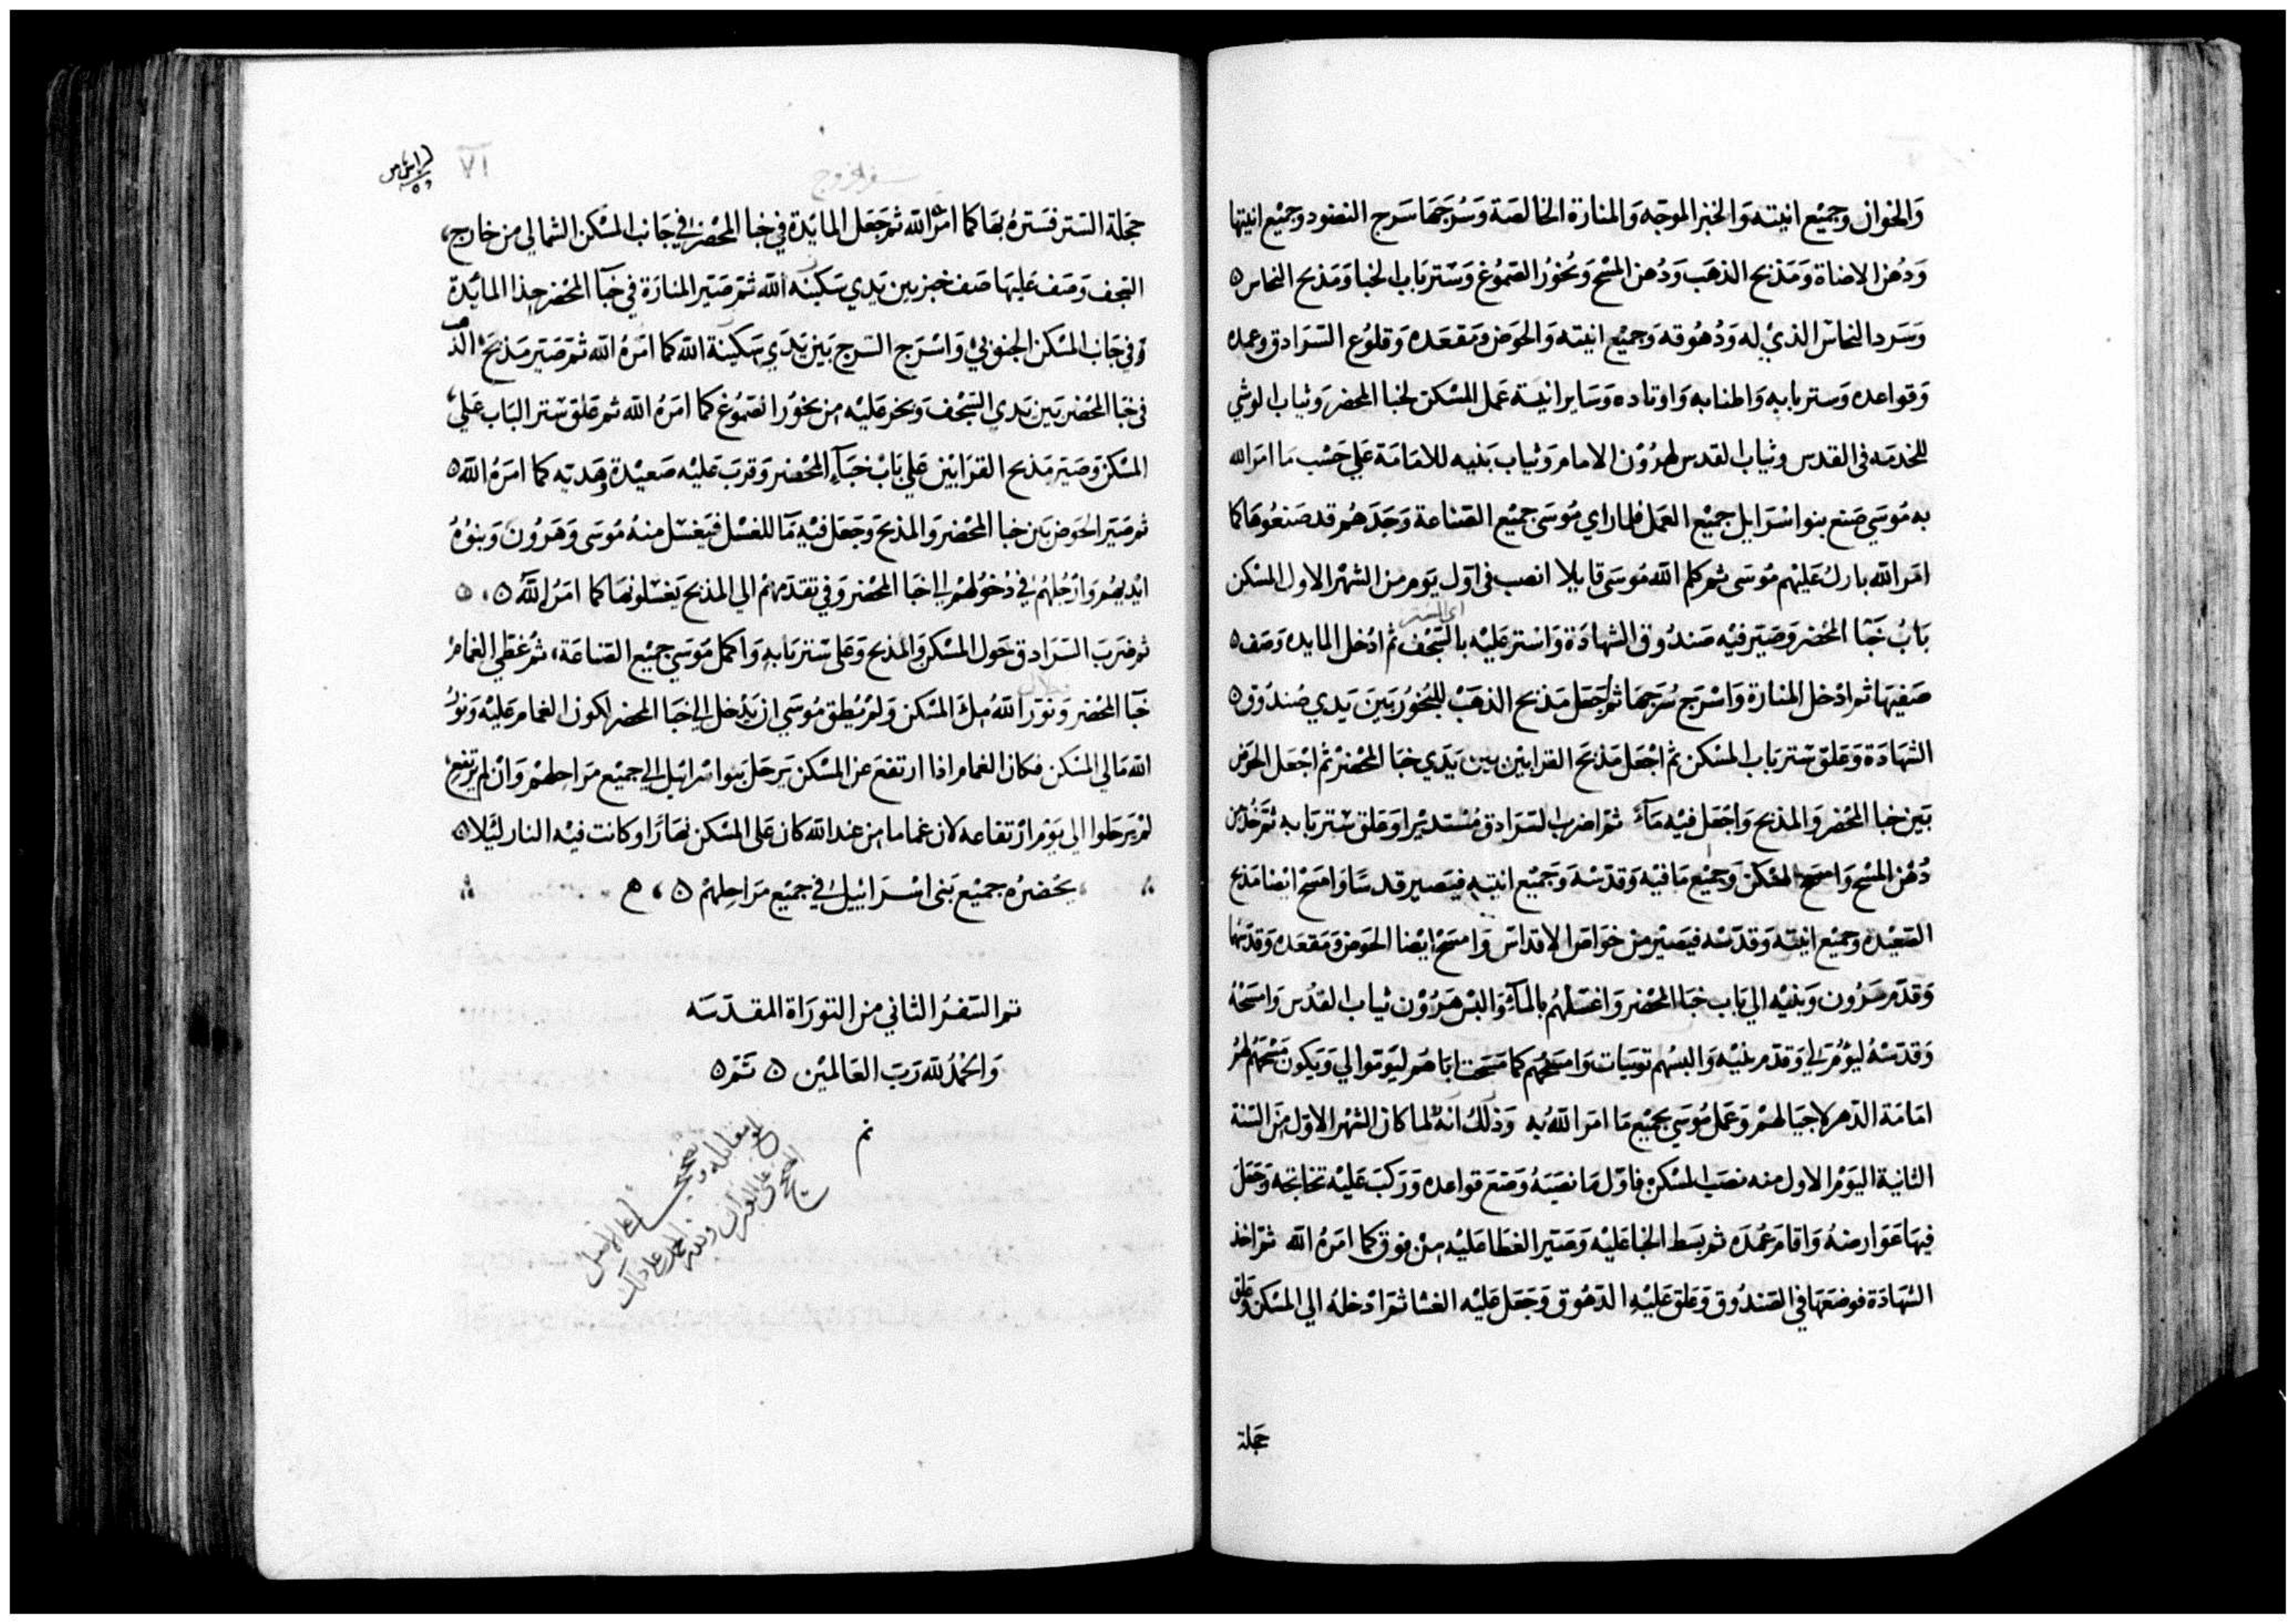 وَالخوان وجميْع انيته وَالخبز الموجّه وَالمنارة الخالصَة وَسُرجهَا سَرج النضود وجميْع انيتها
وَدُهن الاضاة وَمَذبح الذهَب وَدُهن المسْح وَبُخوُر الصَموُغ وَسَتر بَاب الخبا وَمَذبح النحاس ه
وَسَرد النحاسَ الذيْ له وَدُهُوقه وَجميْع انيته وَالحَوض وَمَقعَده وَقلوُع السَرَادق وعمده
وَقواعده وَستر بَابه وَاطنابه وَاوتاده وَسَاير انيَة عَمل المسْكن لخبا المحضر وَثياب الوشي
للخدمَه فى القدس وثيَاب القدس لهرُوْن الامام وَثيَاب بَنيه للامَامَة عَلي حَسْب مَا امَر الله
به مُوسَي صَنع بنوا اسْرَايل جميْع العَمل فلما راي مُوسَى جميْع الصَناعة وَجَدَهُم قد صَنعُوهَا كما
امَر الله بارك عَليْهم مُوسَى ثم كلم الله مُوسَى قايلا انصب فى اوّل يَوم من الشهْر الاول المسْكن
بَابُ خَبَا المحْضر وَصَيّر فيْه صَندُوق الشهادَة وَاسْتر عَليْه بالسَجْف ثم ادْخل المايده وَصَف ه
اى الستر
صَفيهَا ثم ادْخل المنارة وَاسْرج سُرجهَا ثم اجعَل مَذبح الذهَبْ للبُخوُر بَيَن يَدي صُندُوق ه
الشهَادَة وَعَلّق سْتر بَاب المسْكن ثم اجْعَل مَذبَح القرَابيْن بيْن يَدَي خبَا المحْضرْ ثم اجْعَل الحَوض
بَيَن خبا المحْضر وَالمذبح وَاجْعَل فيْه مَاءً ثم اضرب السَرَادق مُسْتديْرا وَعَلق سْتر بَابه ثم خُذ من
دُهْن المسْح وَامسَح المسْكن وَجميْع مَا فيْه وَقدّسْه وَجَميْع انيته فيَصير قدسًا وَامسَحْ ايْضا مَذبح
الصَعيْده وَجميْع انيَته وَقدّسْه فيَصيْر من خَوَاصَ الاقداسَ وَامسَحْ ايْضا الحَوض وَمَقعَده وَقدّسْهَا
وَقدّم هَرُون وَبَنيْه الي بَاب خبَا المحْضر وَاغسَلهُم بالمآءِ وَالبسْ هَرُوْن ثيَاب القدُس وَامسَحْهُ
وَقدّسْهُ ليَؤُمّ لي وَقدّم بنيْه وَالبسْهم توُنيَات وَامسَحْهُم كما مَسَحت ابَاهم ليَؤموا لي وَيَكون مَسْحَهُم لهُمْ
امَامَة الدَهر لاجيَالهمْ وَعَمل مُوسَي بجميْع مَا امَر اللهُ به وَذلك انه لما كان الشهْر الاوّل مَن السَنة
الثانية اليَوْم الاول منه نصَبَ المسْكن فاوّل مَا نصَبَهُ وَضَع قواعده وَرَكبَ عَليْه تخاتجه وَجَعَل
فيهَا عَوَارضهُ وَاقامَ عُمدَه ثم بَسَط الخبَا عَليْه وَصَيّر الغطَا عَليْه مِنْ فوْق كما امَرَهُ الله ثم اخذ
الشهَادَة فوضعَهَا في الصَندُوق وَعَلق عَليْهِ الدَهُوق وَجَعَل عَليْه الغشا ثم ادْخلهُ الي المسْكن وَعَلق
حَجلة
سفر الخروج
٧١
حَجلة السَتر فسَترهُ بهَا كما امَره الله ثم جَعَل المايَدة في خبا المحْضر في جَانب المسْكن الشمالي من خارج
السَجف وَصَف عَليهَا صَف خبز بين يَدي سَكينَه الله ثم صَيّر المنارَة في خبَآ المحْضر حِذا المائدة
وَفي جَانب المسْكن الجنوُبيْ وَاسْرَج السَرج بَيَن يَدَي سَكينَة الله كما امَرهُ الله ثم صَيّر مَذبَح الذهب
فى خبَا المحْضر بَيَن يَدي السَجْف وَبخر عَليْه من بخوُر الصَموُغ كما امَرهُ الله ثم عَلق سْتر البَاب عَلي
المسْكن وَصَيّر مَذبح القرَابيْن عَلي بَابْ خبَآءِ المحْضر وَقربَ عَليْه صَعيْدة وَهَديه كما امَرهُ الله ه
ثم صَيّر الحَوض بَين خبا المحْضر وَالمذبح وَجَعَل فيْهِ مَآ للغسْل فيَغسْل منهُ مُوسَى وَهَرُونَ وَبنُوهُ
ايْديهُم وَارْجُلهُمْ في دُخوُلهمْ الي خبَا المحْضر وَفي تقدمهُم الي المذبح يَغسْلونهَا كما امَر اللهُ ه
ثم ضرَبَ السَرَادق حَول المسْكن وَالمذبح وَعَلى سْتر بَابهِ وَاكمل مُوسَي جميْع الصَناعَة ثم غطي الغمام
خبَآ المحْضر وَنوُر اللهُ ملَا المسْكن وَلم يُطق مُوسَي ان يَدْخل الي خبَا المحضر لكون الغمام عَليْه وَنوُر
الله مَالي المسْكن فكان الغمام اذا ارتفعَ عن المسْكن يَرحَل بَنوا اسْرَائيل الي جميْع مَرَاحلهمْ وَانْ لم يَرتفعِ
لمْ يَرحَلوا الي يَوْم ارْتفاعه لان غماما من عند الله كان عَلى المسْكن نهَارًا وَكانت فيْه النار ليْلا ه
يحْضرهُ جميْع بَنى اسْرَائيل في جميْع مَرَاحِلهمْ ه
تم السَفرُ الثاني من التورَاة المقدّسَه
وَالحمْدُ للهِ رَبّ العَالميْن ه تَمّ ه
تم
بلغ مقابله وتصحيحا على الاصل
الصحيح على العبراني ولله الحمد على ذلك